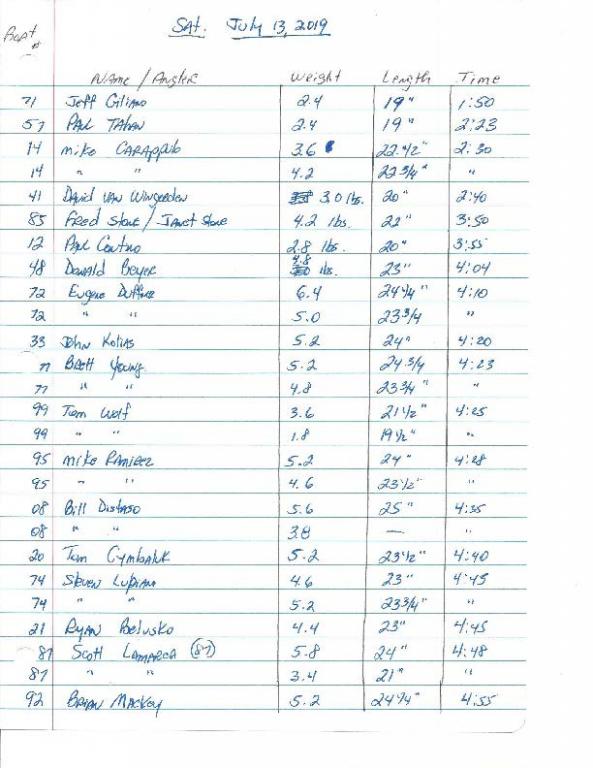 Sat. July 13, 2019
Boat #
Name / Angler Weight Length Time
71 Jeff Giliano 2.4 19" 1:50
57 Paul Tahan 2.4 19" 2:23
14 Mike 3.6 22 1/2" 2:30
14 " " 4.2 22 3/4" "
41 David Van Wingerden 3.0 lbs. 20" 2:40
85 Fred Stone / Janet Stone 4.2 lbs. 22" 3:50
12 Paul 2.8 lbs. 20" 3:55
48 Donald Beyer 4.8 lbs. 23" 4:04
72 Eugene 6.4 24 1/4" 4:10
72 " " 5.0 23 3/4 "
33 John Kolias 5.2 24" 4:20
77 Brett Young 5.2 24 3/4 4:23
77 " " 4.8 23 3/4" "
99 Tom Wolf 3.6 21 1/2" 4:25
99 " " 1.8 19 1/2" "
95 Mike Ramirez 5.2 24" 4:28
95 " " 4.6 23 1/2" "
08 Bill Distaso 5.6 25" 4:35
08 " " 3.8 — "
20 Tom Cymbaluk 5.2 23 1/2" 4:40
74 Steven Lupiani 4.6 23" 4:45
74 " " 5.2 23 3/4" "
21 Ryan Belusko 4.4 23" 4:45
87 Scott Lamarca (87) 5.8 24" 4:48
87 " " 3.4 21" "
92 Brian Mackey 5.2 24 1/4" 4:55